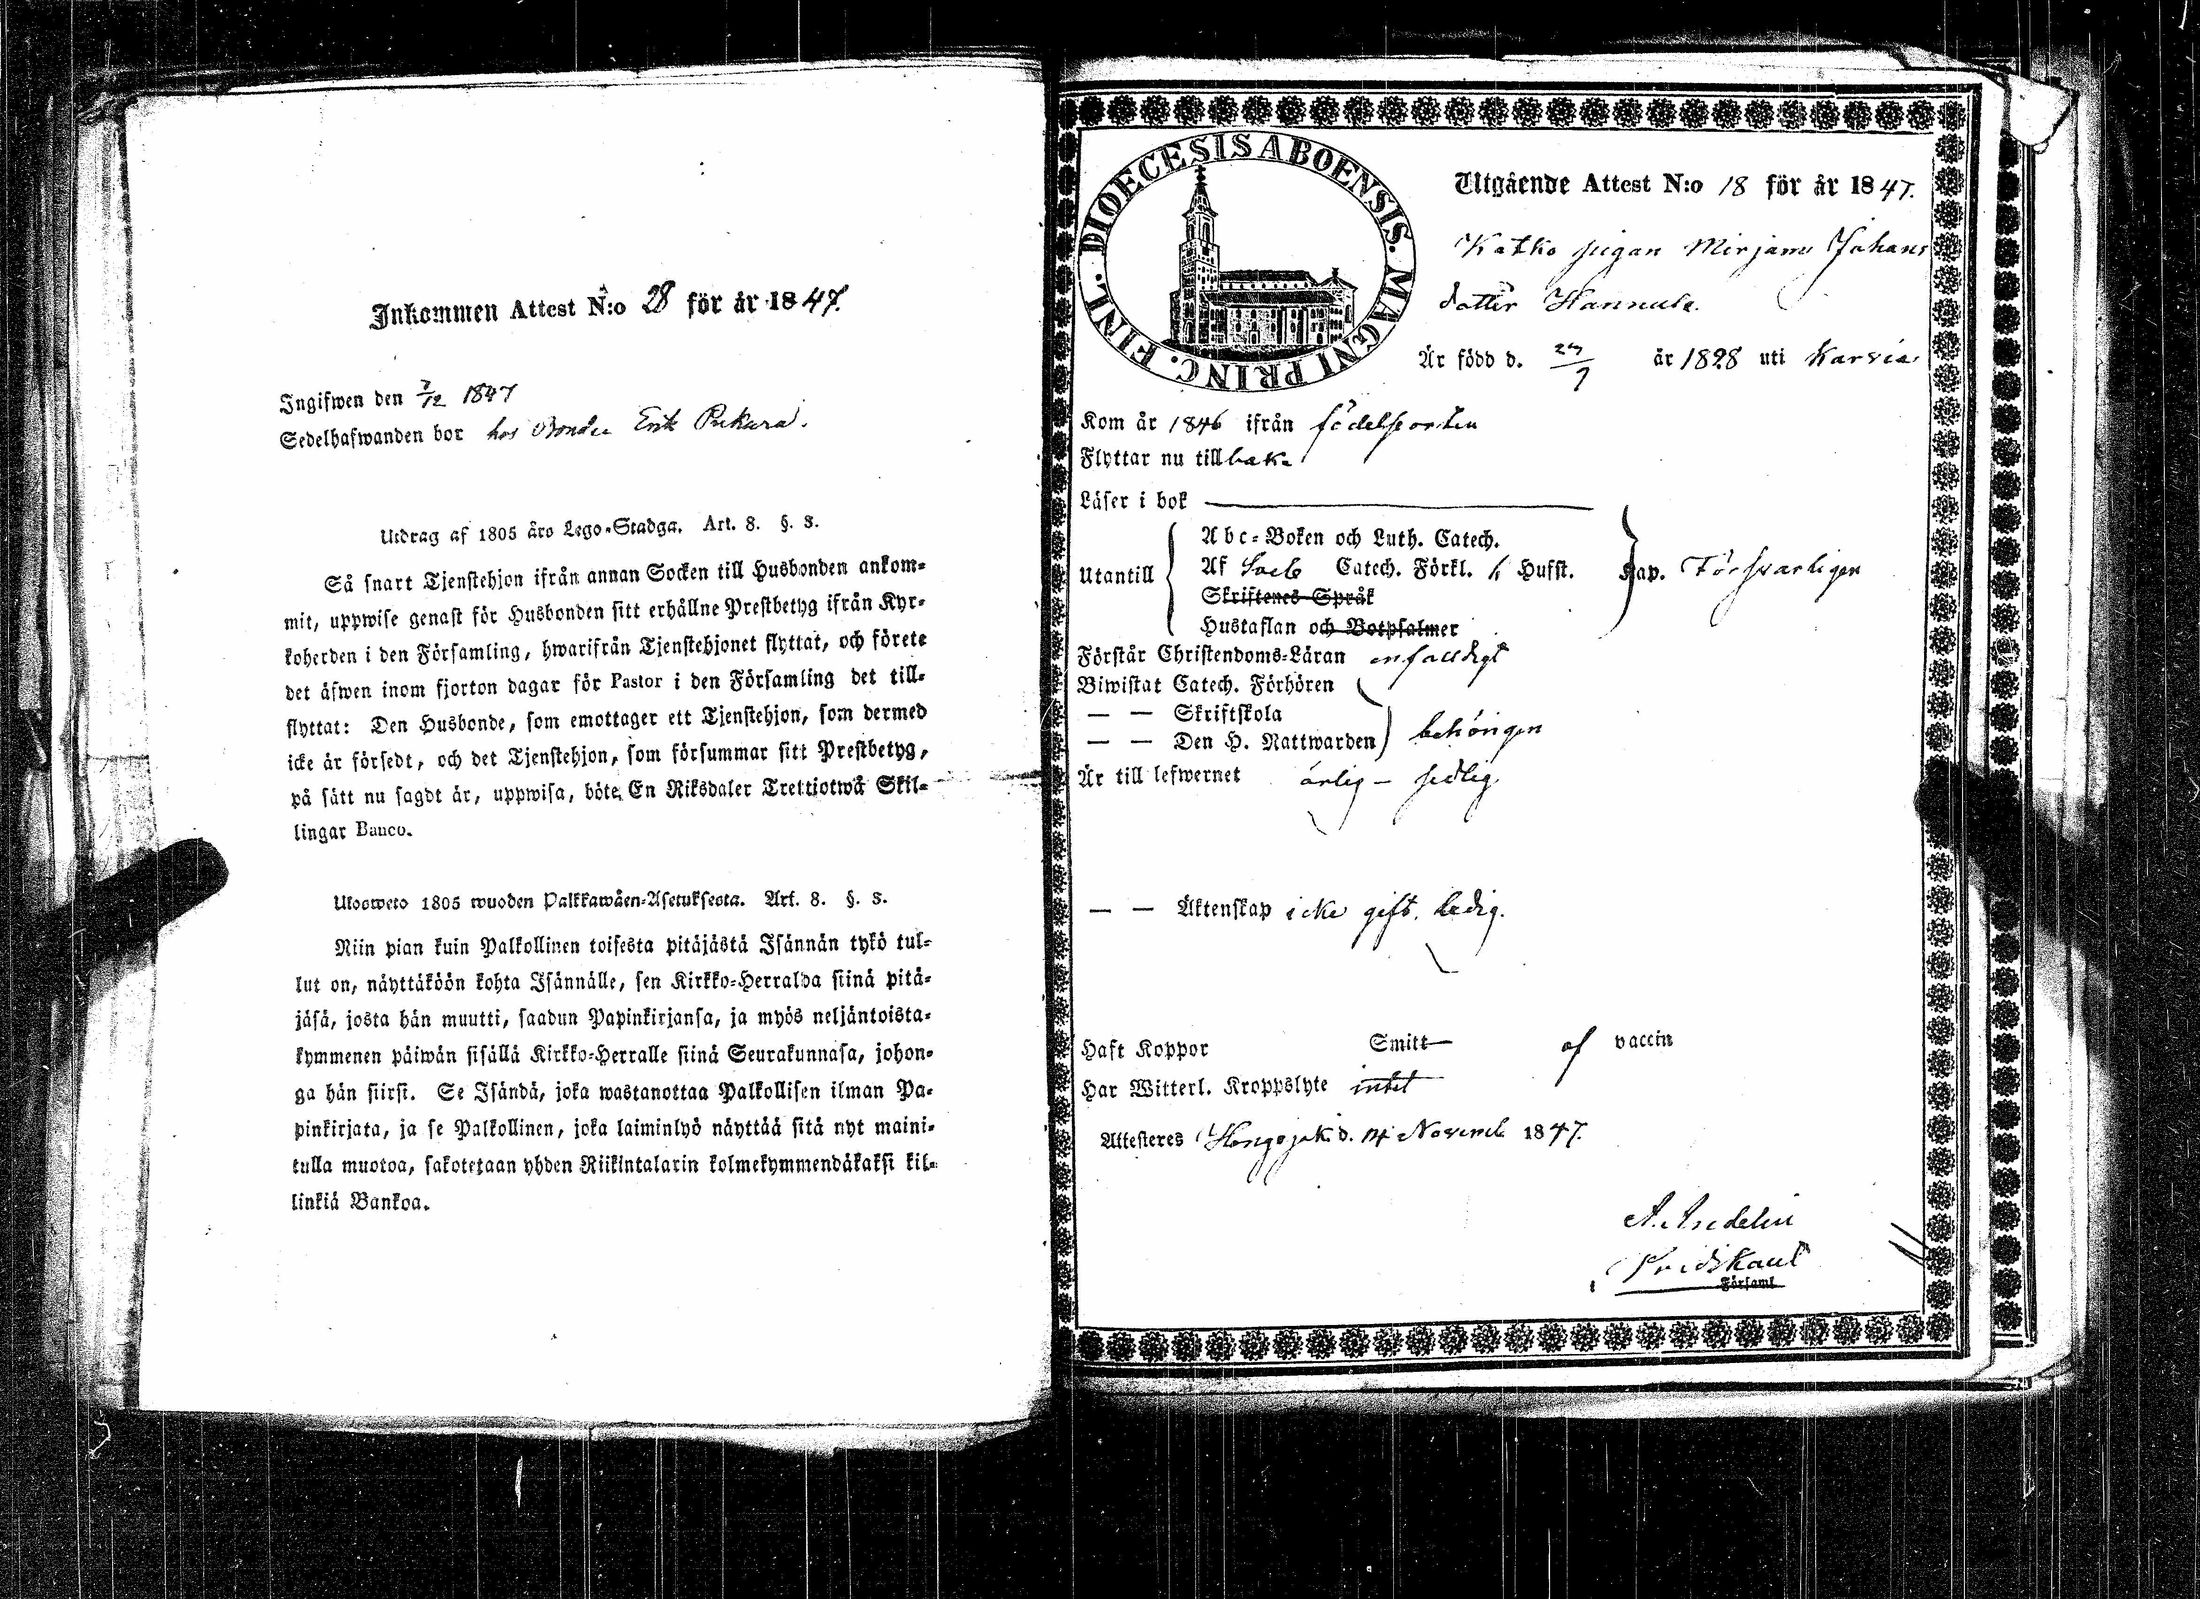 Inkommen Attest N:o 28 för år 1847.
Ingifwen den 7/12 1847
Sedelhafwanden bor hos Bonden Erik Pukara.
Utdrag af 1805 års Lego-Stadga. Art. 8. §. 3.
Så snart Tjenstehjon ifrån annan Socken till Husbonden ankom-
mit, uppwise genast för Husbonden sitt erhållne Prestbetyg ifrån Kyr-
koherden i den Församling, hwarifrån Tjenstehjonet flyttat, och förete
det äfwen inom fjorton dagar för Pastor i den Församling det till-
flyttat: Den Husbonde, som emottager ett Tjenstehjon, som dermed
icke är försedt, och det Tjenstehjon, som försummar sitt Prestbetyg,
på sätt nu sagdt är, uppwisa, böte En Riksdaler Trettiotwå Skil-
lingar Banco.
Ulosweto 1805 wuoden Palkkawäen-Asetuksesta. Art. 8. §. 3.
Niin pian kuin Palkollinen toisesta pitäjästä Isännän tykö tul-
lut on, näyttäköön kohta Isännälle, sen Kirkko-Herralda siinä pitä-
jäsä, josta hän muutti, saadun Papinkirjansa, ja myös neljäntoista-
kymmenen päiwän sisällä Kirkko-Herralle siinä Seurakunnasa, johon-
ga hän siirsi. Se Isändä, joka wastanottaa Palkollisen ilman Pa-
pinkirjata, ja se Palkollinen, joka laiminlyö näyttää sitä nyt maini-
tulla muotoa, sakotetaan yhden Riikintalarin kolmekymmendäkaksi kil-
linkiä Bankoa.
DIOECESIS ABOENSIS. MAGNI PRINC. FINL.
Utgående Attest N:o 18 för år 1847.
Katko pigan Mirjam Johans
dotter Hannula.
Är född d. 27/7 år 1828 uti Karvia
Kom år 1846 ifrån födelseorten
Flyttar nu tillbaka
Läser i bok
Abc-Boken och Luth. Catech.
Utantill Af Catech. Förkl. Hufst. Kap. Försvarligen
Skriftenes Språk
Hustaflan och Botpsalmer
Förstår Christendoms-Läran enfaldigt
Biwistat Catech. Förhören
— — Skriftskola
— — Den H. Nattwarden behörigen
Är till lefwernet ärlig – sedlig.
— — Äktenskap icke gift. ledig.
Haft Koppor Smitt af vaccin
Har Witterl. Kroppslyte intet
Attesteres Hongojoki d. 14 Novemb 1847.
A. Asdelin
Prediskant
Församl